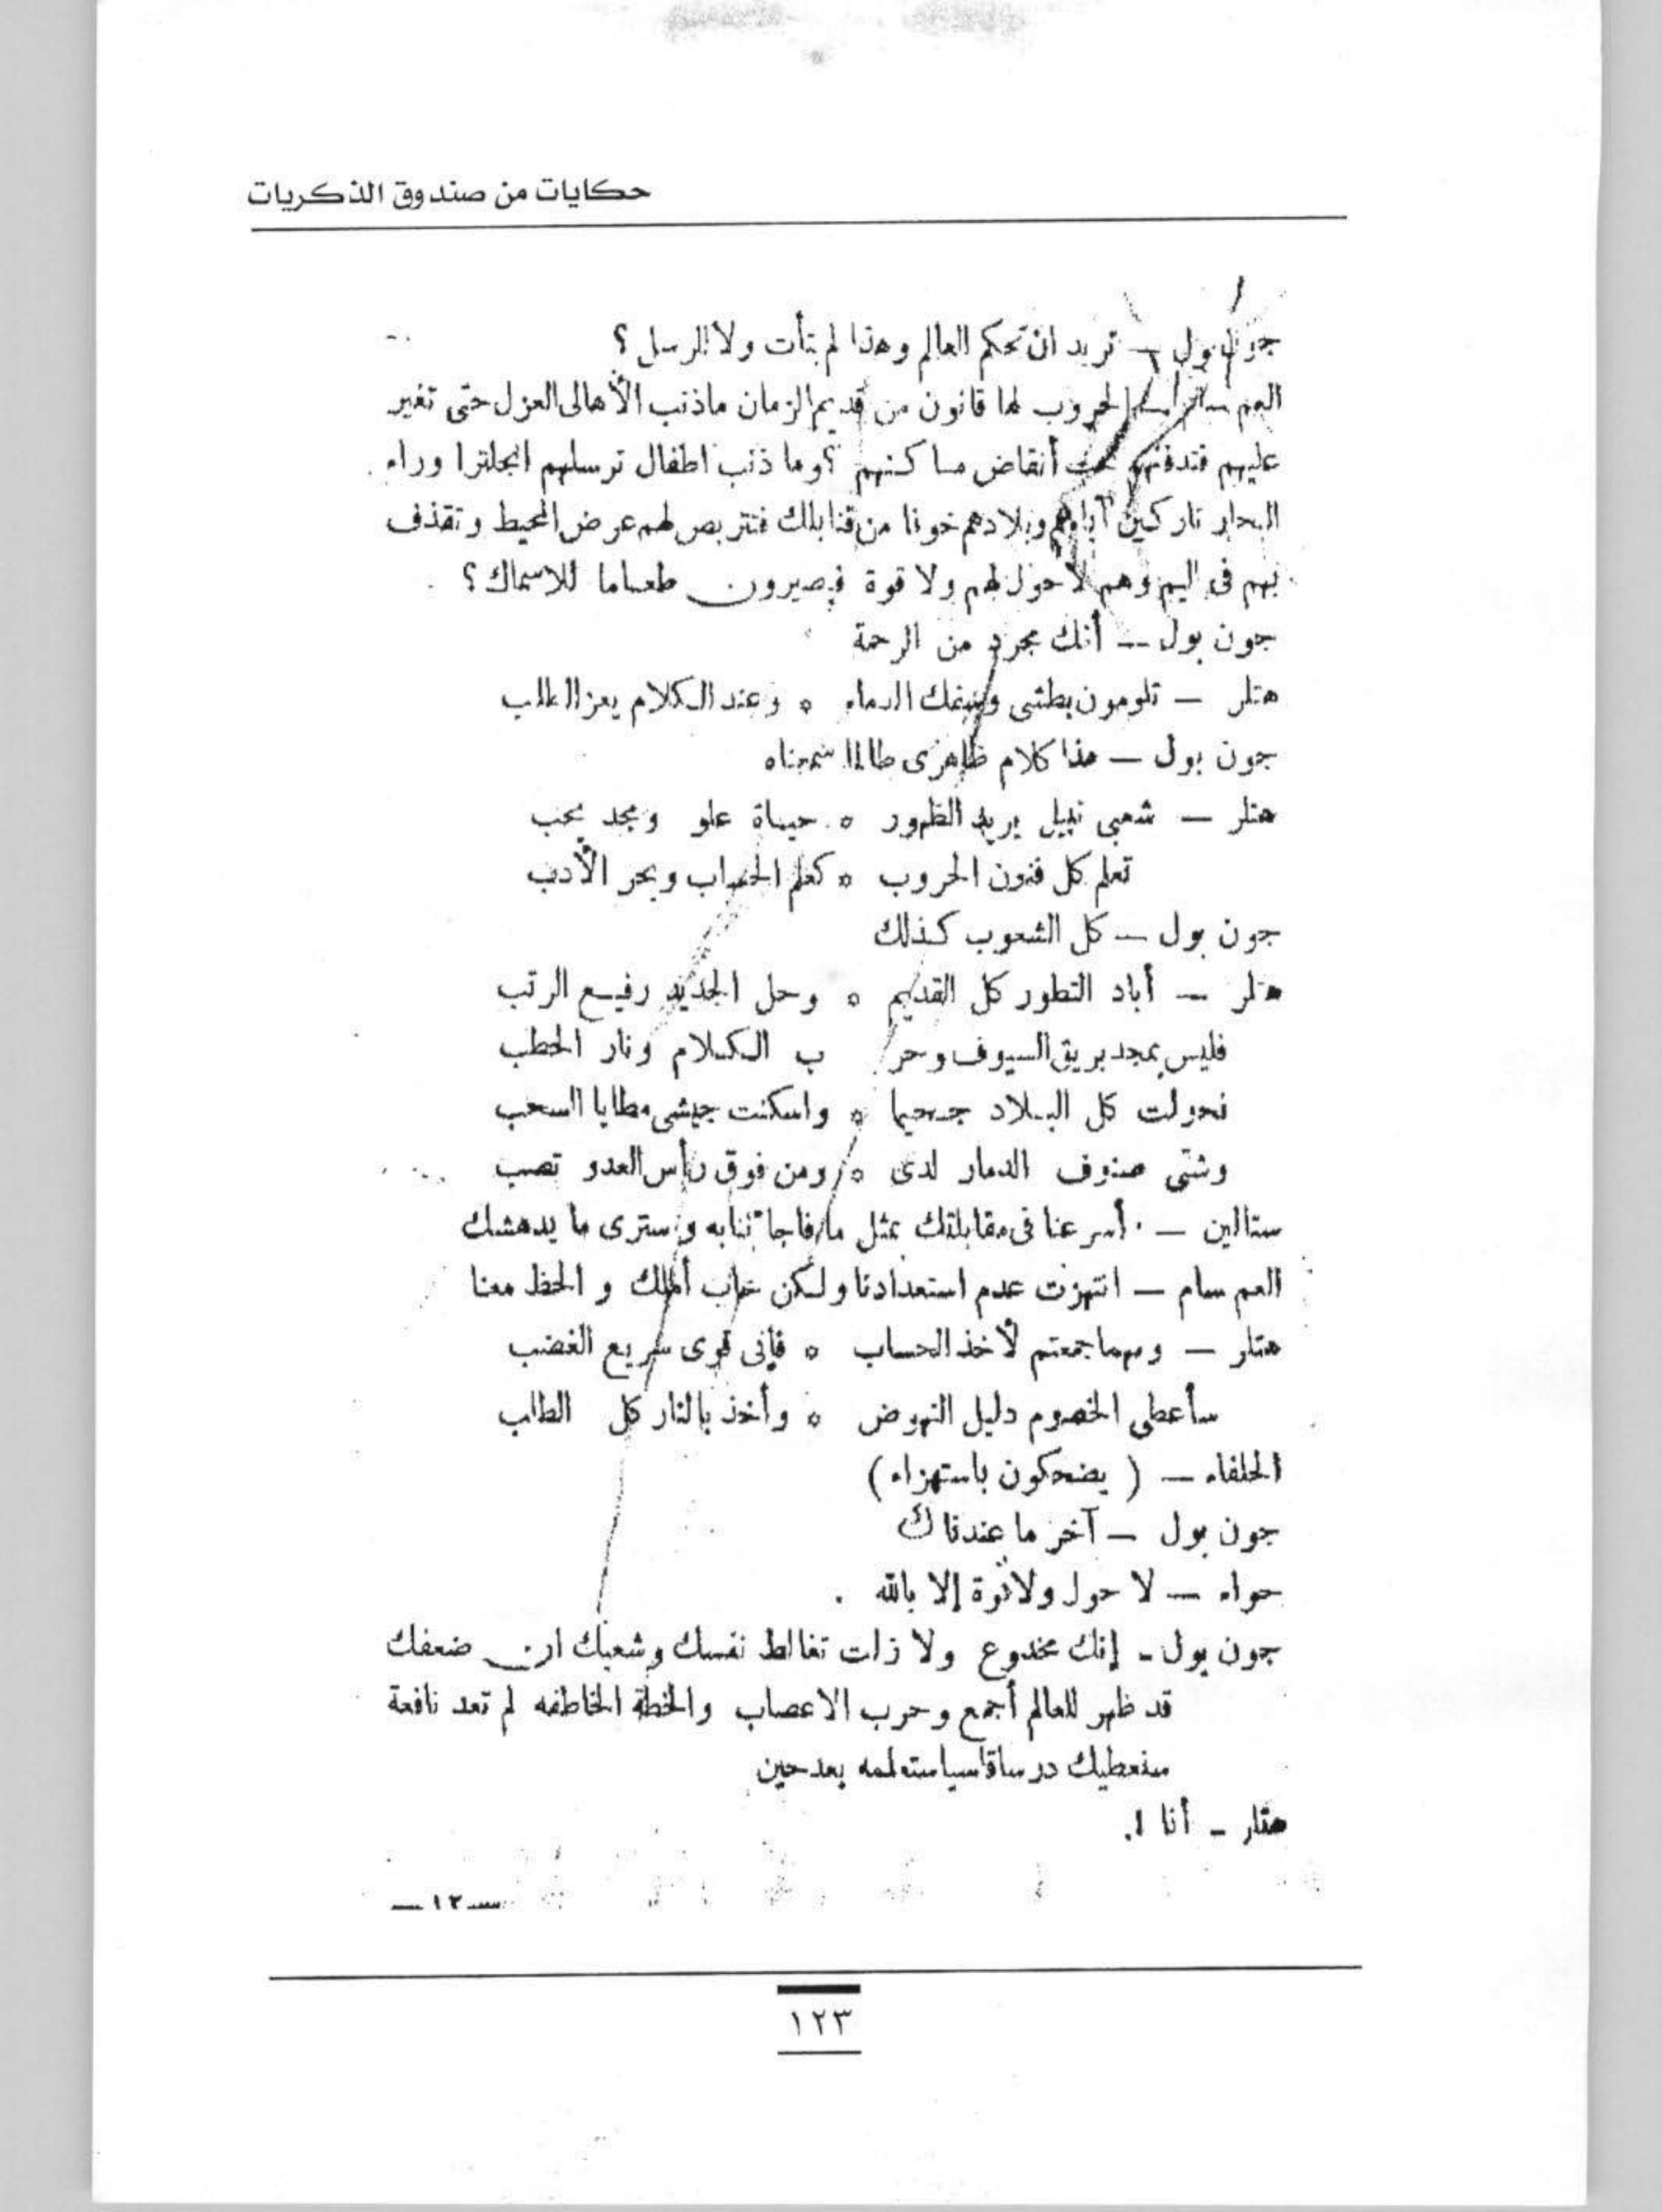 حكايات من صندوق الذكريات
جون بول — تريد ان تحكم العالم وهذا لم يتأت ولا للرسل ؟
العم سام — الحروب لها قانون من قديم الزمان ماذنب الأهالى العزل حتى تغير
عليهم فتدفنهم تحت أنقاض مساكنهم ؟ وما ذنب اطفال ترسلهم انجلترا وراء
البحار تاركين آباءهم وبلادهم خوفا من قنابلك فتتربص لهم عرض المحيط وتقذف
بهم فى اليم وهم لا حول لهم ولا قوة فيصيرون طعاما للاسماك ؟
جون بول — أنك مجرد من الرحمة
هتلر — تلومون بطشى وسفك الدماء * وعند الكلام يعز الطلب
جون بول — هذا كلام ظاهرى طالما سمعناه
هتلر — شعبى نبيل يريد الظهور * حياة علو ومجد يحب
تعلم كل فنون الحروب * كعلم الحساب وبحر الأدب
جون بول — كل الشعوب كذلك
هتلر — أباد التطور كل القديم * وحل الجديد رفيع الرتب
فليس بمجد بريق السيوف وحر ب الكلام ونار الحطب
فحولت كل البلاد جحيما * واسكنت جيشى مطايا السحب
وشتى صنوف الدمار لدى * ومن فوق رأس العدو تصب
ستالين — أسرعنا فى مقابلتك بمثل ما فاجأتنا به وسترى ما يدهشك
العم سام — انتهزت عدم استعدادنا ولكن خاب أملك و الحظ معنا
هتلر — ومهما جمعتم لأخذ الحساب * فإنى قوى سريع الغضب
سأعطى الخصوم دليل النهوض * وأخذ بالنار كل الطلب
الحلفاء — ( يضحكون باستهزاء )
جون بول — آخر ما عندك
حواء — لا حول ولا قوة إلا بالله .
جون بول - إنك مخدوع ولا زلت تغالط نفسك وشعبك ان ضعفك
قد ظهر للعالم أجمع وحرب الاعصاب والخطة الخاطفه لم تعد نافعة
سنعطيك درسا قاسيا ستعلمه بعد حين
هتلر - أنا !.
— ١٢ —
١٢٣